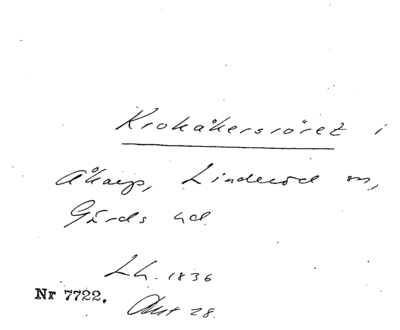 Krokåkersröret i
Åkarp, Linderöd sn,
Gärds hd.
Lh. 1836
Nr 7722.
Akt 28.